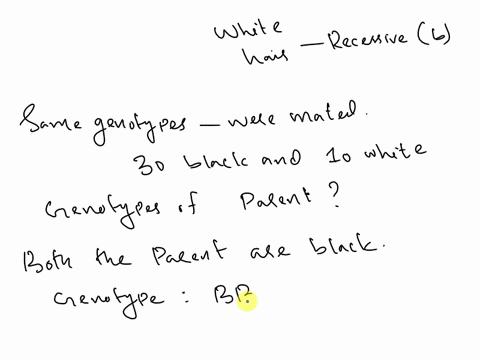 White
hair — Recessive (b)
Same genotypes — were mated.
30 black and 10 white
Genotypes of Parent ?
Both the Parent are black.
Genotype : BB